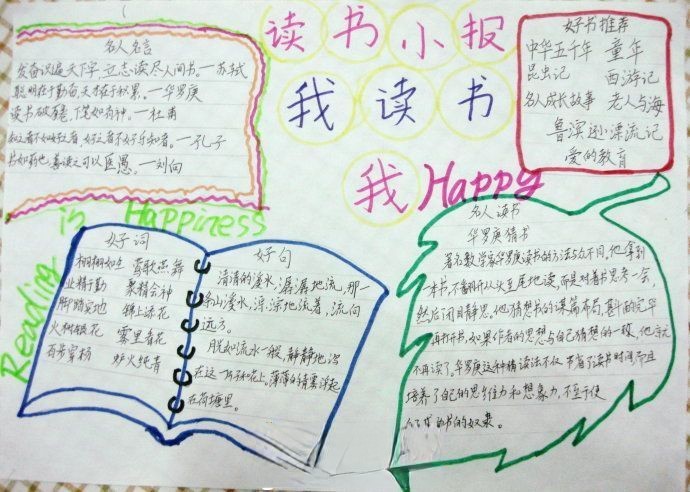 读书小报
我读书
我 Happy
名人名言
发奋识遍天下字 立志读尽人间书。—苏轼
聪明在于勤奋天才在于积累。—华罗庚
读书破万卷,下笔如有神。—杜甫
知之者不如好之者,好之者不如乐知者。—孔子
书如药也,善读之可以医愚。—刘向
好书推荐
中华五千年 童年
昆虫记 西游记
名人成长故事 老人与海
鲁滨逊漂流记
爱的教育
Reading is Happiness
好词
栩栩如生 莺歌燕舞
业精于勤 聚精会神
脚踏实地 锦上添花
火树银花 雾里看花
百步穿杨 炉火纯青
好句
清清的溪水,潺潺地流,那一
条山溪水,淙淙地流着,流向
远方。
月光如流水一般,静静地泻
在这一片叶子和花上。薄薄的青雾浮起
在荷塘里。
名人读书
华罗庚猜书
著名数学家华罗庚读书的方法与众不同,他拿到
一本书,不翻开从头至尾地读,而是对着书思考一会,
然后闭目静思,他猜想书的谋篇布局,斟酌完毕
再打开书,如果作者的思想与自己猜想的一致,他就
不再读了。华罗庚这种猜读法不仅节省了读书时间而且
培养了自己的思维力和想象力,不至于使
自己成为书的奴隶。